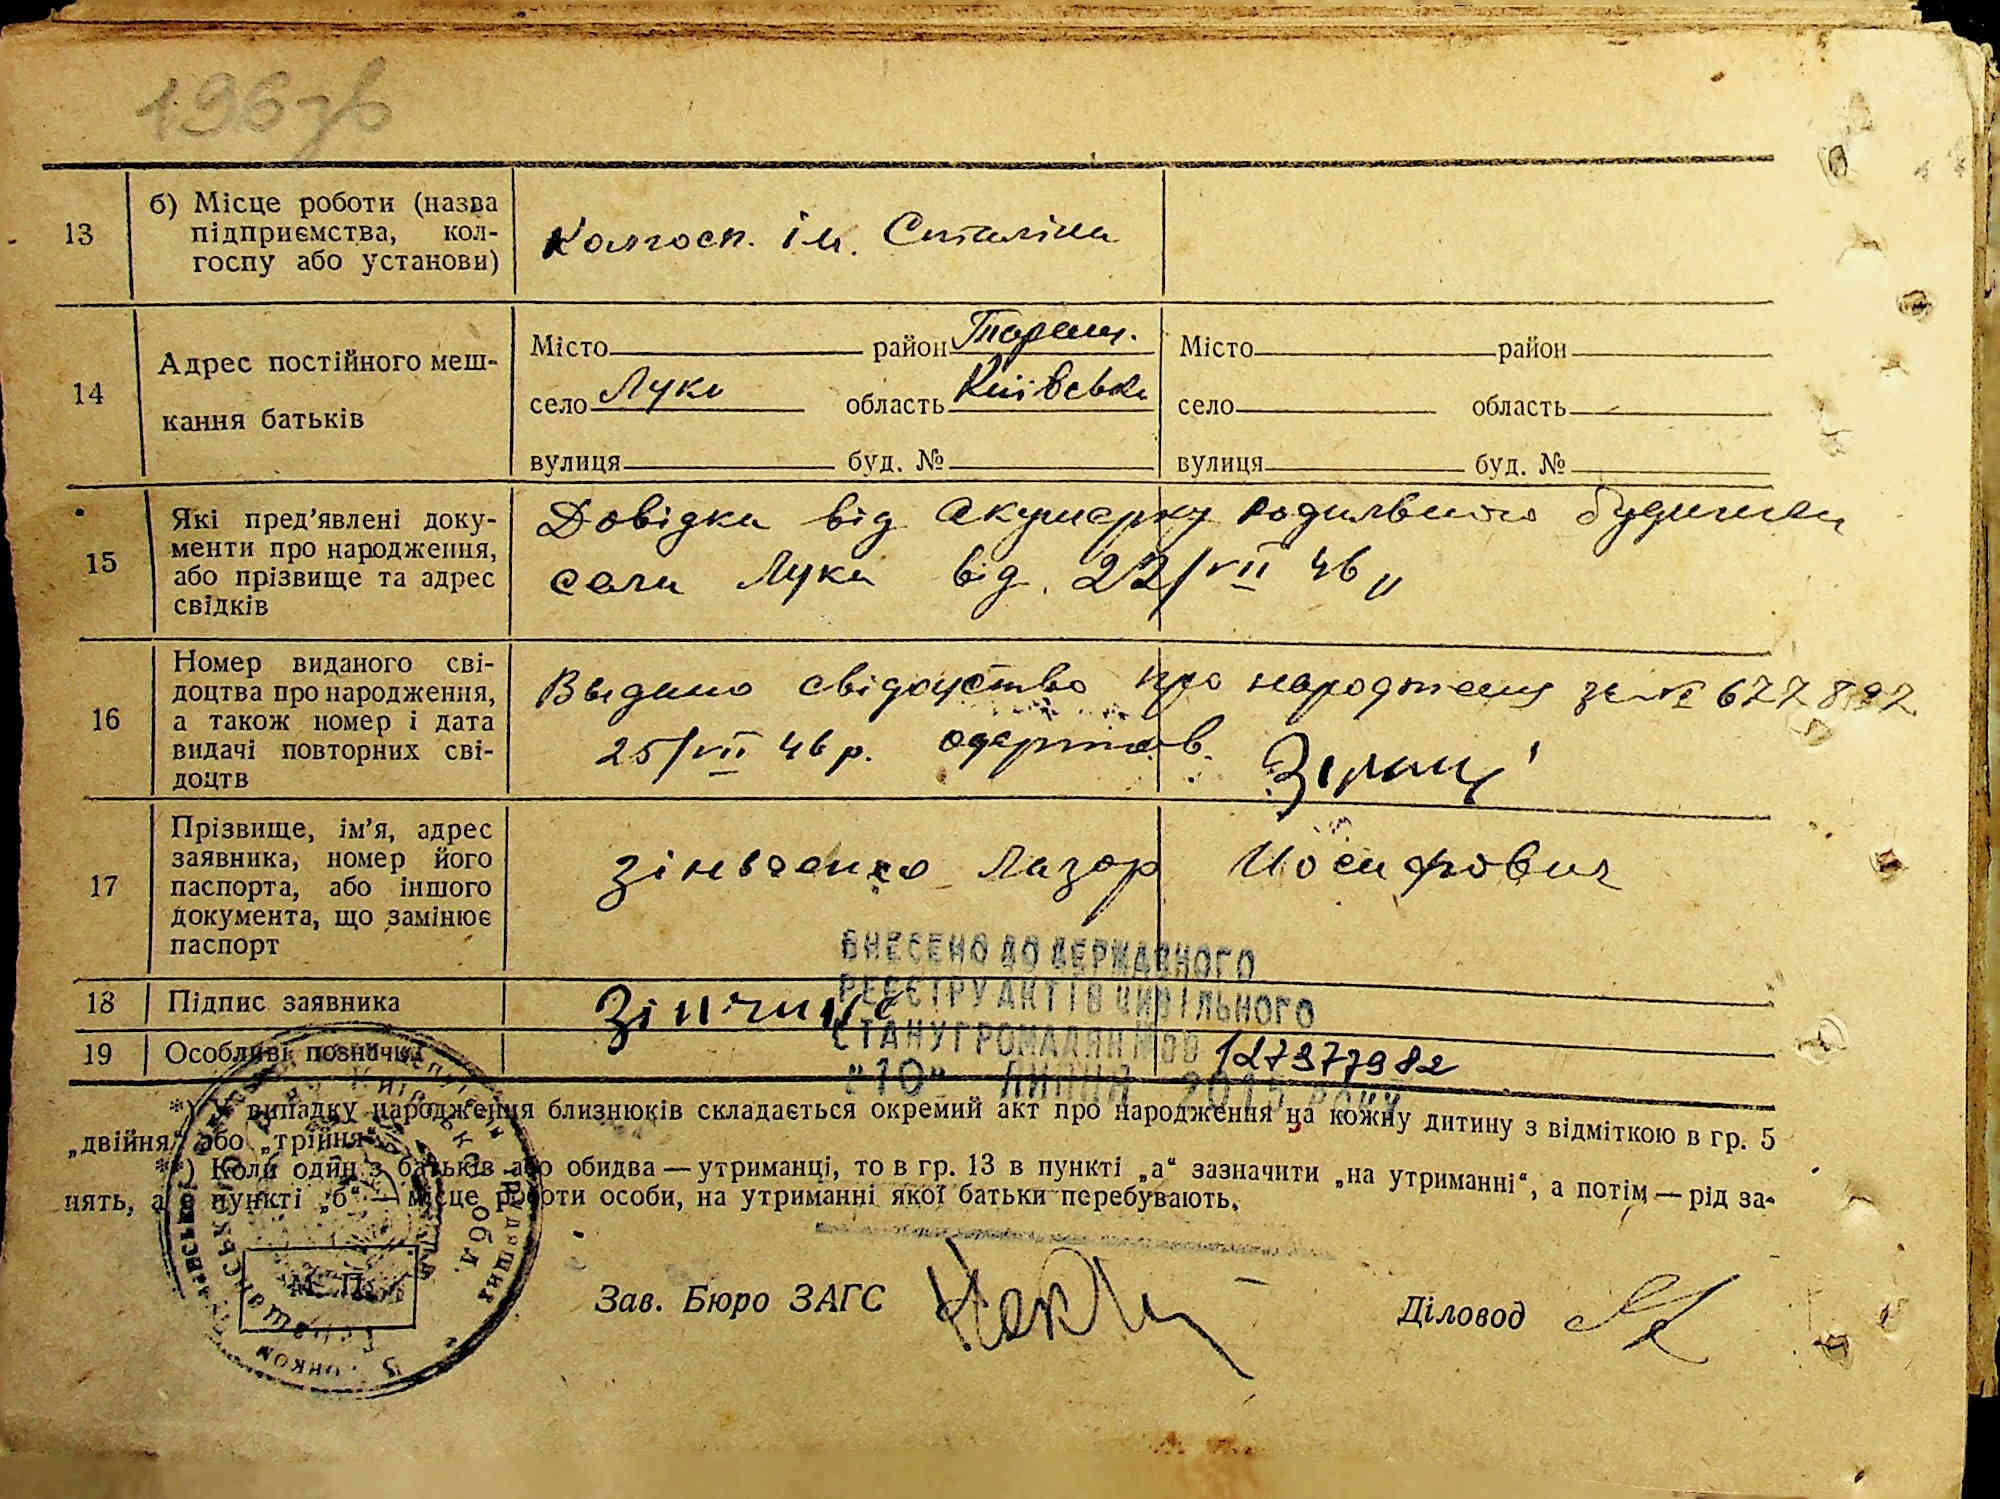 196 зв
13
б) Місце роботи (назва
підприємства, кол-
госпу або установи)
Колгосп. ім. Сталіна
14
Адрес постійного меш-
кання батьків
Місто район Таращ.
село Лука область Київська
вулиця буд. №
Місто район
село область
вулиця буд. №
15
Які пред'явлені доку-
менти про народження,
або прізвище та адрес
свідків
Довідка від акушерки родильного будинка
села Лука від. 22/VII 46 „
16
Номер виданого сві-
доцтва про народження,
а також номер і дата
видачі повторних сві-
доцтв
Видано свідоцтво про народження за № 677892
25/VII 46 р. одержав.
17
Прізвище, ім'я, адрес
заявника, номер його
паспорта, або іншого
документа, що замінює
паспорт
Зінченко Лазор Иосифович
ВНЕСЕНО ДО ДЕРЖАВНОГО
РЕЄСТРУ АКТІВ ЦИВІЛЬНОГО
СТАНУ ГРОМАДЯН ПОВ 127377982
"10" ЛИПНЯ 2015 РОКУ
18
Підпис заявника
19
Особливі позначки
*) У випадку народження близнюків складається окремий акт про народження на кожну дитину з відміткою в гр. 5
„двійня“ або „трійня“.
**) Коли один з батьків або обидва — утриманці, то в гр. 13 в пункті „а“ зазначити „на утриманні“, а потім — рід за-
нять, а в пункті „б“ — місце роботи особи, на утриманні якої батьки перебувають.
М. П.
Зав. Бюро ЗАГС
Діловод